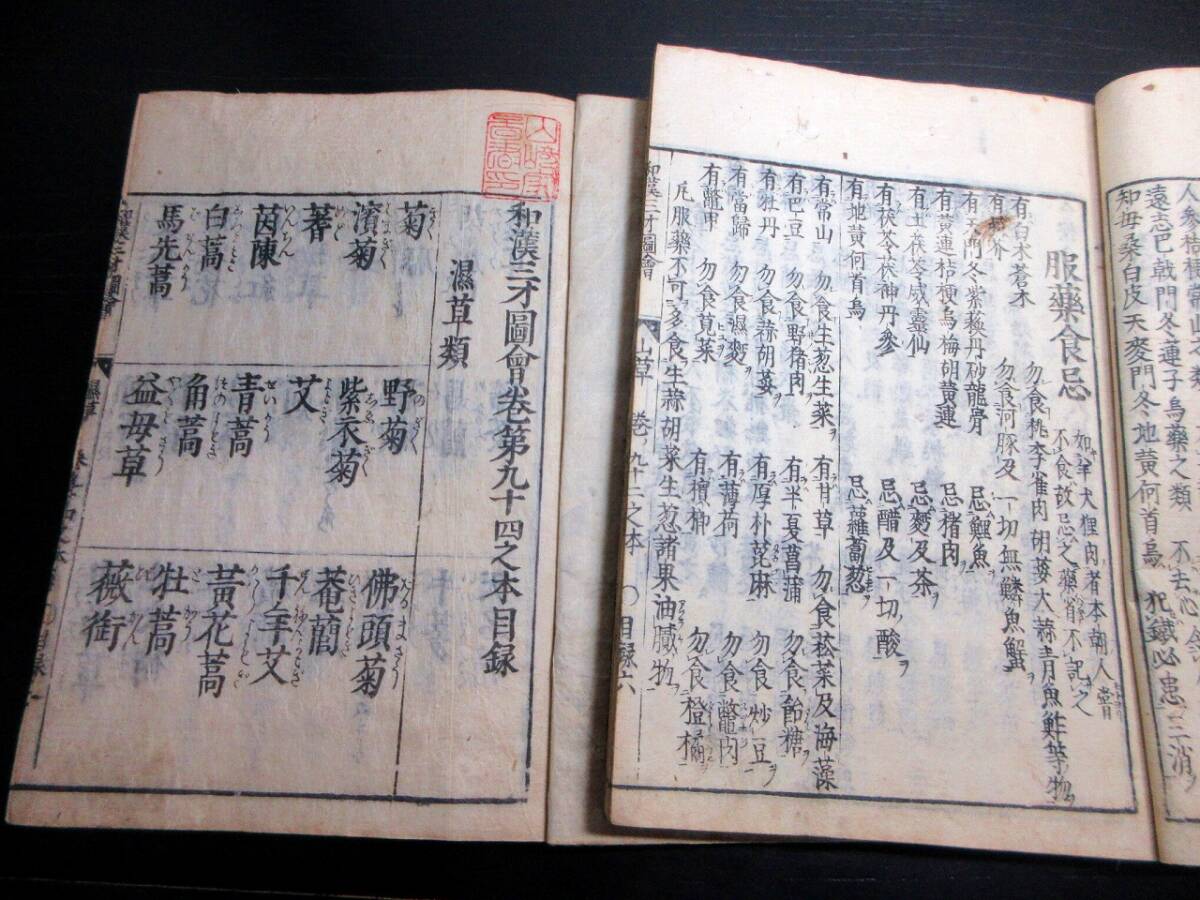 人參桔梗
遠志巴戟門冬蓮子烏藥之類　不去心
知母桑白皮天麥門冬地黃何首烏　犯鐵必患三消
服藥食忌
如羊犬狸肉者本朝人嘗
不食故忌之藥者不記之
有白朮蒼朮　勿食桃李雀肉胡荽大蒜青魚鮓等物ヲ
勿食河豚及一切無鱗魚蟹ヲ
有天門冬紫蘓丹砂龍骨　忌鯉魚
有黃連桔梗烏梅胡黃連　忌猪肉
有土茯苓威靈仙　忌麪及茶
有茯苓茯神丹參　忌醋及一切酸ヲ
有地黃何首烏　忌蘿蔔葱
有常山　勿食生葱生菜ヲ　有甘草　勿食菘菜及海藻
有巴豆　勿食野猪肉　有半夏菖蒲　勿食飴糖ヲ
有牡丹　勿食蒜胡荽　有厚朴萞麻　勿食炒豆ヲ
有當歸　勿食濕麪　有薄荷　勿食鼈肉
有鼈甲　勿食莧菜　有檳榔　勿食橙橘
凡服藥不可多食生蒜胡菜生葱諸果油膩物
和漢三才圖會　山草　卷九十二之本　〇目録六
和漢三才圖會卷第九十四之本目録
濕草類
菊　野菊　佛頭菊
濱菊　紫衣菊　菴䕡
蓍　艾　千年艾
茵陳　青蒿　黃花蒿
白蒿　角蒿　牡蒿
馬先蒿　益母草　薇銜